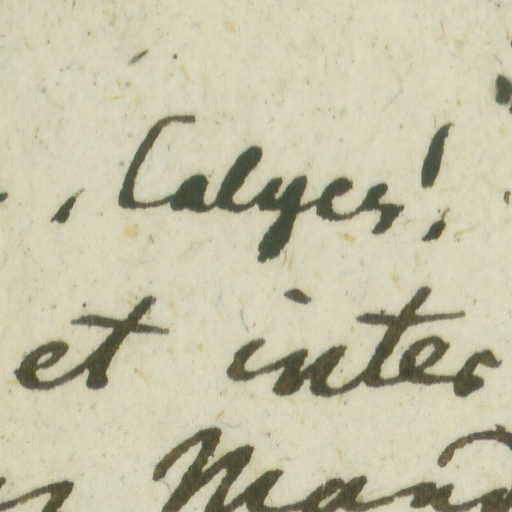 , Calyes!
et inter
Mand